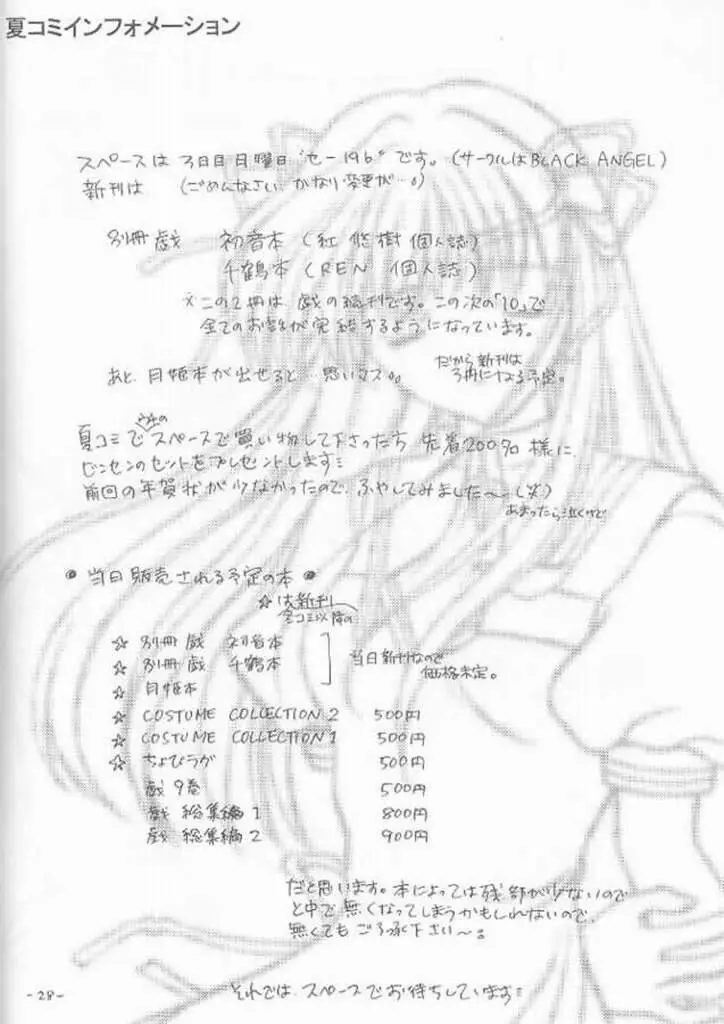 夏コミインフォメーション
スペースは 3日目日曜日 "セー19b" です。(サークルはBLACK ANGEL)
新刊は (ごめんなさい かなり変更が…。)
別冊 戯 初音本 (紅 悠樹 個人誌)
千鶴本 (REN 個人誌)
※この2冊は 戯の続刊です。この次の「10」で
全てのお話が完結するようになっています。
あと、月姫本が出せると…思いマス。。
だから新刊は
3冊になる予定。
夏コミでウチのスペースで買い物して下さった方 先着200名様に
ビンセンのセットをプレゼントします
前回の年賀状が少なかったので、ふやしてみました〜(笑)
あまったら泣くけど
● 当日 販売される予定の本 ●
☆は新刊
冬コミ以降の
☆ 別冊 戯 初音本
☆ 別冊 戯 千鶴本
☆ 月姫本
当日新刊なので
価格未定。
☆ COSTUME COLLECTION 2 500円
☆ COSTUME COLLECTION 1 500円
☆ ちょびラグ 500円
戯 9巻 500円
戯 総集編 1 800円
戯 総集編 2 900円
だと思います。本によっては残部が少ないので
と中で無くなってしまうかもしれないので、
無くても ごろ承下さい〜。
それでは、スペースでお待ちしています
-28-